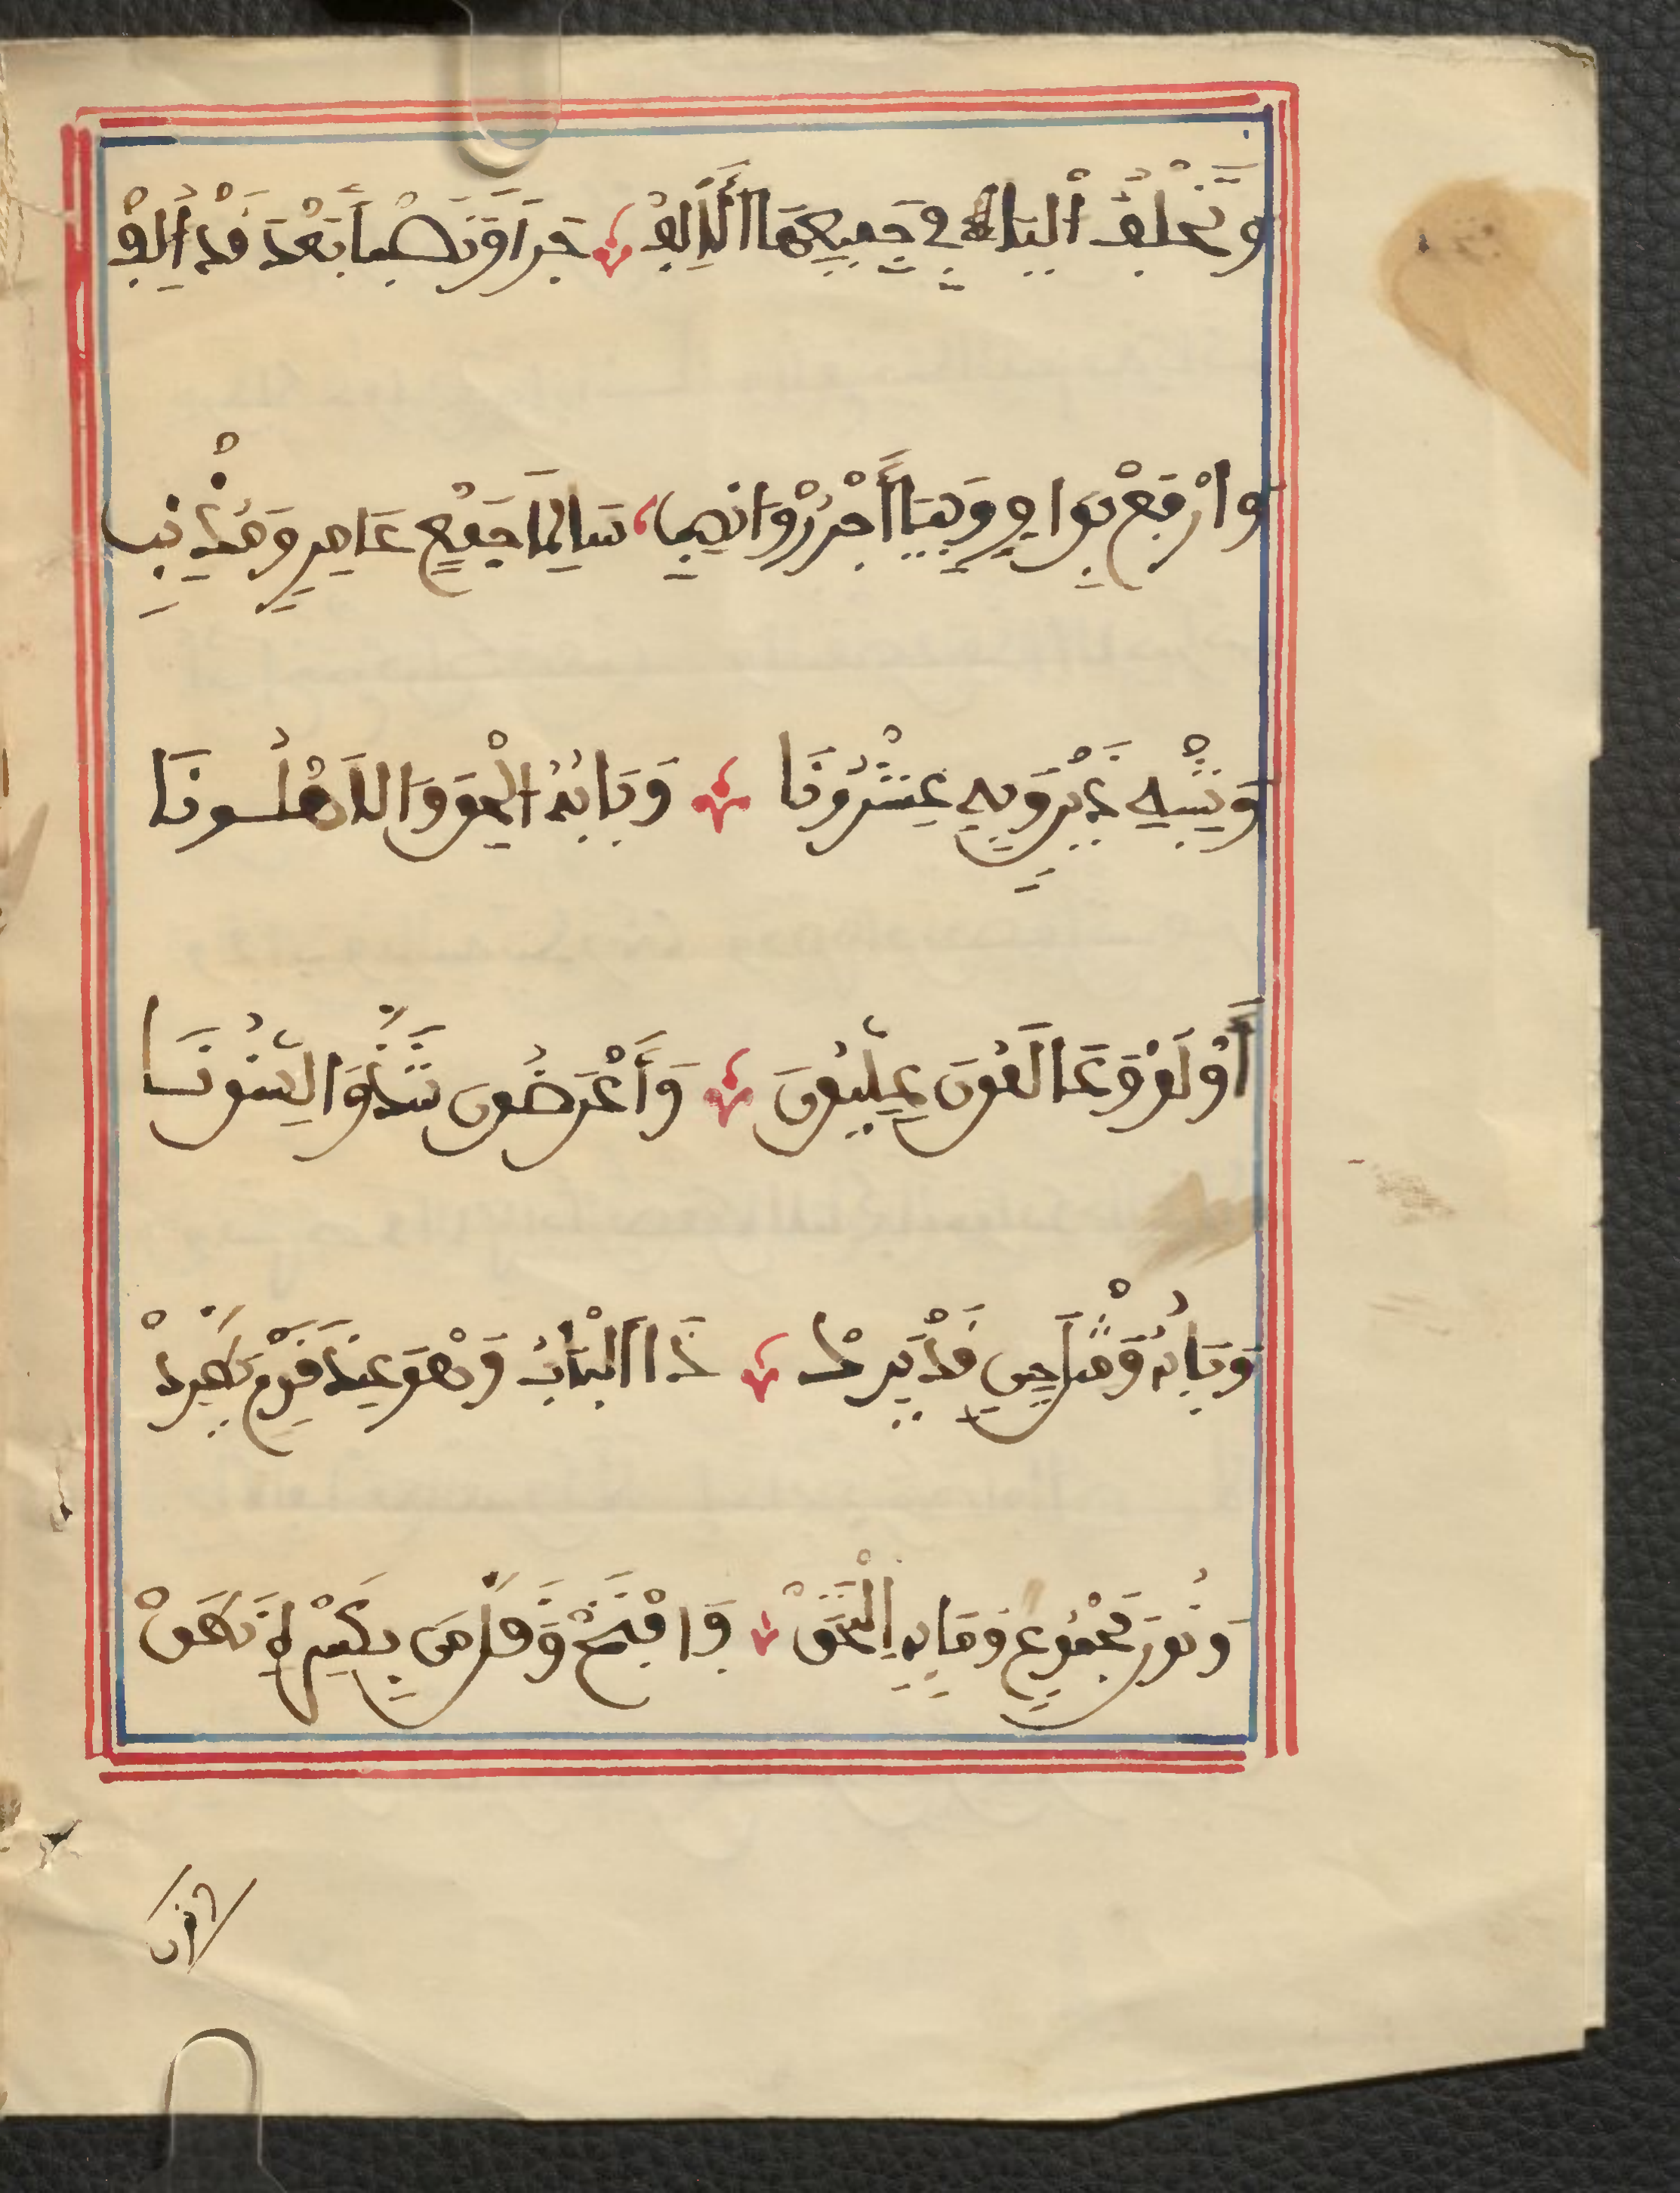 وَتَخْلُفُ الْيَا فِي جَمِيعِهَا الْأَلِفْ جَرًّا وَنَصْبًا بَعْدَ فَتْحٍ قَدْ أُلِفْ
وَارْفَعْ بِوَاوٍ وَبِيَا أَجْرُرْ وَانْصِبِ سَالِمَ جَمْعِ عَامِرٍ وَمُذْنِبِ
وَشِبْهِ ذَيْنِ وَبِهِ عِشْرُونَا وَبَابُهُ أُلْحِقَ وَالْأَهْلُونَا
أُوْلُو وَعَالَمُونَ عِلِّيُّونَ وَأَرَضُونَ شَذَّ وَالسِّنُونَا
وَبَابُهُ وَمِثْلَ حِينٍ قَدْ يَرِدْ ذَا الْبَابُ وَهْوَ عِنْدَ قَوْمٍ يَطَّرِدْ
وَنُونَ مَجْمُوعٍ وَمَا بِهِ الْتَحَقْ فَافْتَحْ وَقَلَّ مَنْ بِكَسْرِهِ نَطَقْ